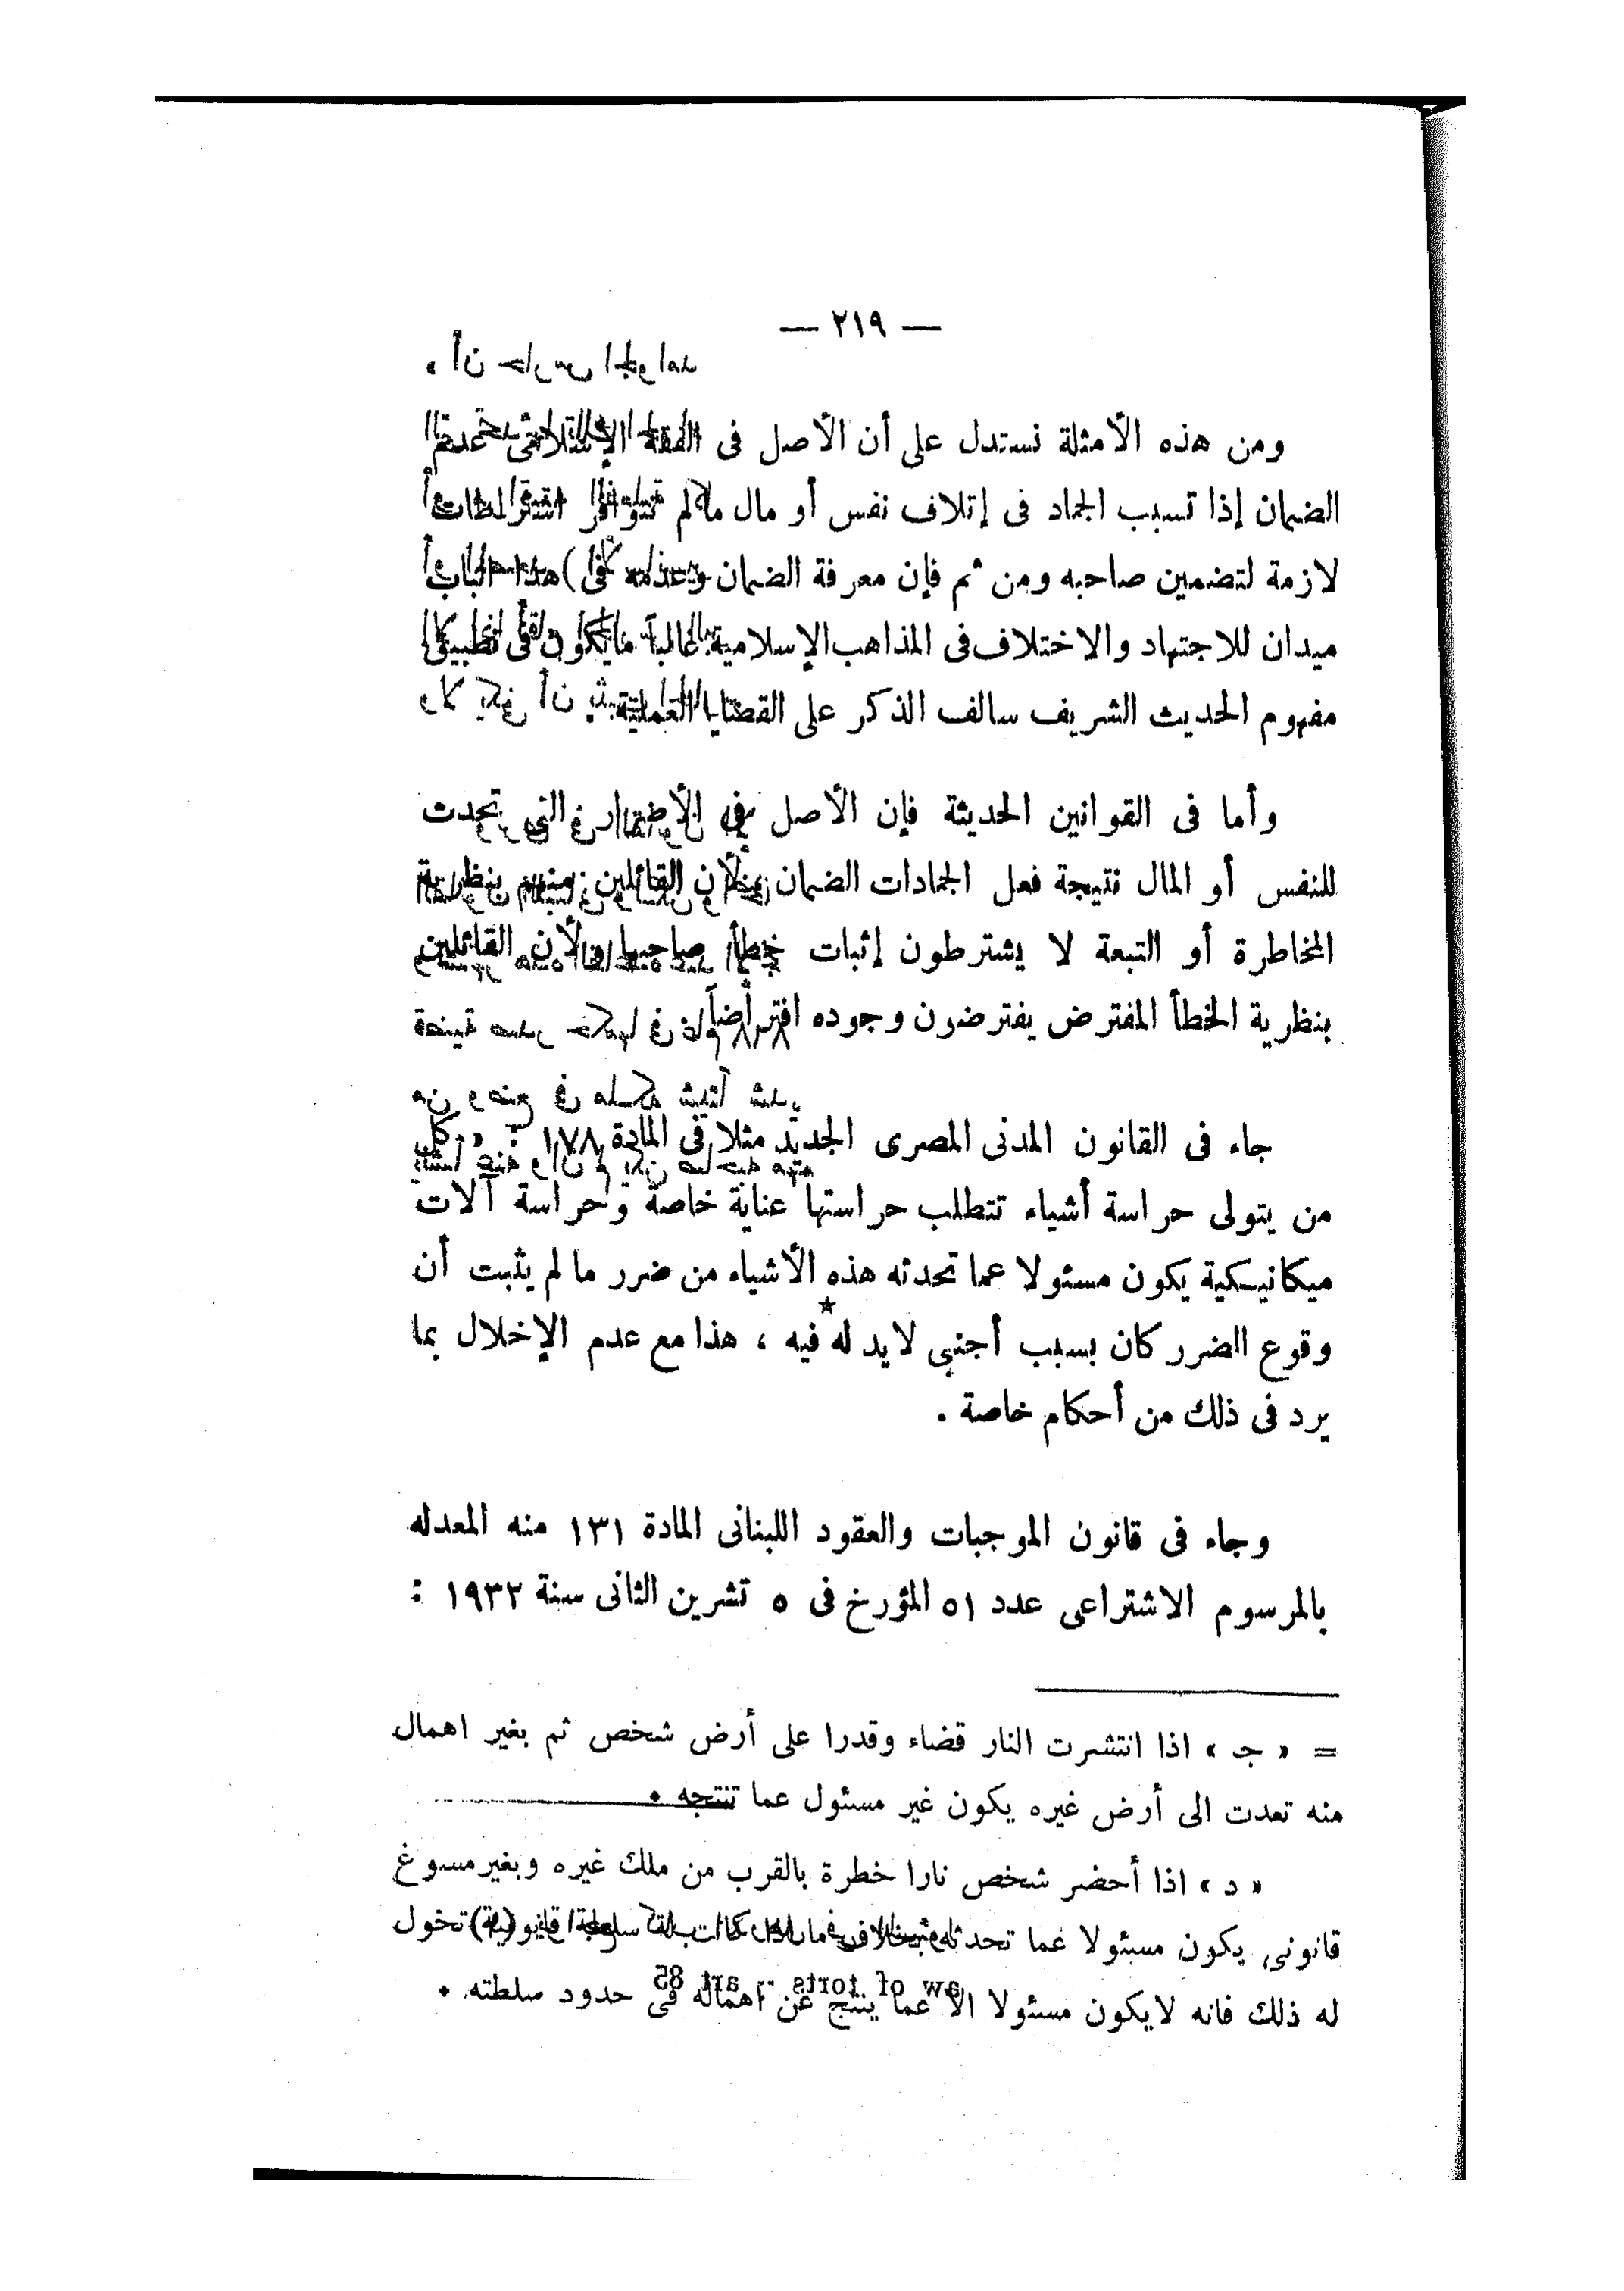 — ٢١٩ —
ومن هذه الأمثلة نستدل على أن الأصل فى الفقه الإسلامى عدم
الضمان إذا تسبب الجماد فى إتلاف نفس أو مال مالم تتوافر اشتراطات
لازمة لتضمين صاحبه ومن ثم فإن معرفة الضمان وعدمه فى هذا الباب
ميدان للاجتهاد والاختلاف فى المذاهب الإسلامية غالباً ما يكون فى تطبيق
مفهوم الحديث الشريف سالف الذكر على القضايا العملية
وأما فى القوانين الحديثة فإن الأصل فى الأضرار التى تحدث
للنفس أو المال نتيجة فعل الجمادات الضمان لأن القائلين منهم بنظرية
المخاطرة أو التبعة لا يشترطون إثبات خطأ صاحبها ولأن القائلين
بنظرية الخطأ المفترض يفترضون وجوده افتراضاً
جاء فى القانون المدنى المصرى الجديد مثلا فى المادة ١٧٨ : « كل
من يتولى حراسة أشياء تتطلب حراستها عناية خاصة وحراسة آلات
ميكانيكية يكون مسئولا عما تحدثه هذه الأشياء من ضرر ما لم يثبت أن
وقوع الضرر كان بسبب أجنبى لايد له فيه ، هذا مع عدم الإخلال بما
يرد فى ذلك من أحكام خاصة .
وجاء فى قانون الموجبات والعقود اللبنانى المادة ١٣١ منه المعدله
بالمرسوم الاشتراعى عدد ٥١ المؤرخ فى ٥ تشرين الثانى سنة ١٩٣٢ :
= « جـ » اذا انتشرت النار قضاء وقدرا على أرض شخص ثم بغير اهمال
منه تعدت الى أرض غيره يكون غير مسئول عما تنتجه .
« د » اذا أحضر شخص نارا خطرة بالقرب من ملك غيره وبغير مسوغ
قانونى يكون مسئولا عما تحدثه بخلاف ما اذا كانت له سلطة قانونية تخول
له ذلك فانه لايكون مسئولا الا عما ينتج عن اهماله فى حدود سلطته .